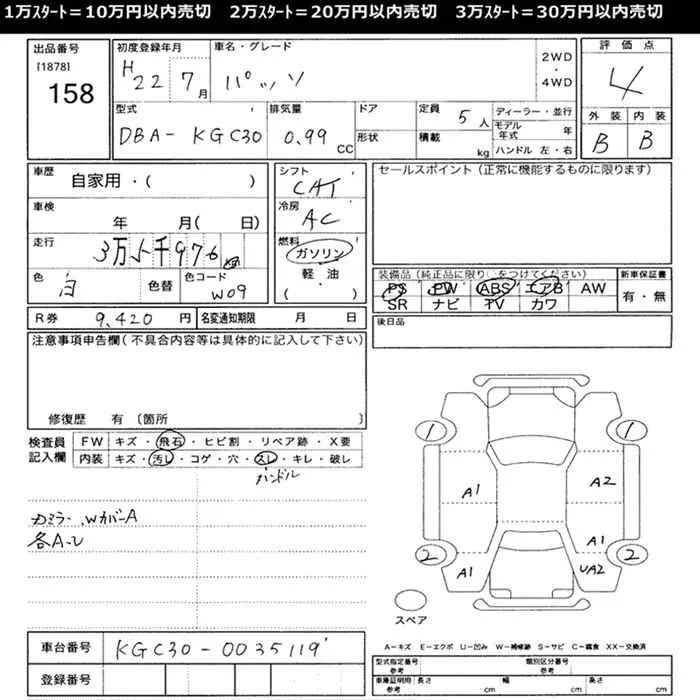 1万ｽﾀｰﾄ＝10万円以内売切　2万ｽﾀｰﾄ＝20万円以内売切　3万ｽﾀｰﾄ＝30万円以内売切
出品番号
[1878]
158
初度登録年月
H22 7月
車名・グレード
パッソ
2WD
・
4WD
評価点
4
型式
DBA- KGC30
排気量
0.99 CC
ドア
形状
定員 5人
積載 kg
ディーラー・並行
モデル年式 年
ハンドル 左・右
外装 内装
B B
車歴 自家用・( )
車検 年 月( 日)
走行
色 白 色替
色コード W09
シフト CAT
冷房 AC
燃料 ガソリン
軽・油
・( )
セールスポイント（正常に機能するものに限ります）
装備品（純正品に限り○をつけてください）
PS PW ABS エアB AW
SR ナビ TV カワ
新車保証書
有・無
R券 9,420 円
名変通知期限 月 日
後日品
注意事項申告欄(不具合内容等は具体的に記入して下さい)
修復歴 有〔箇所 〕
検査員記入欄
FW キズ・飛石・ヒビ割・リペア跡・X要
内装 キズ・汚レ・コゲ・穴・スレ・キレ・破レ
ハンドル
カミラー、WカバーA
各A-U
1 1
A1 A2
A1
2 2
A1 UA2
スペア
車台番号 KGC30-0035119
登録番号
A－キズ E－エクボ U－凹み W－補修跡 S－サビ C－腐食 XX－交換済
型式指定番号 参考
類別区分番号 参考
車庫証明用 参考
長さ cm 幅 cm 高さ cm